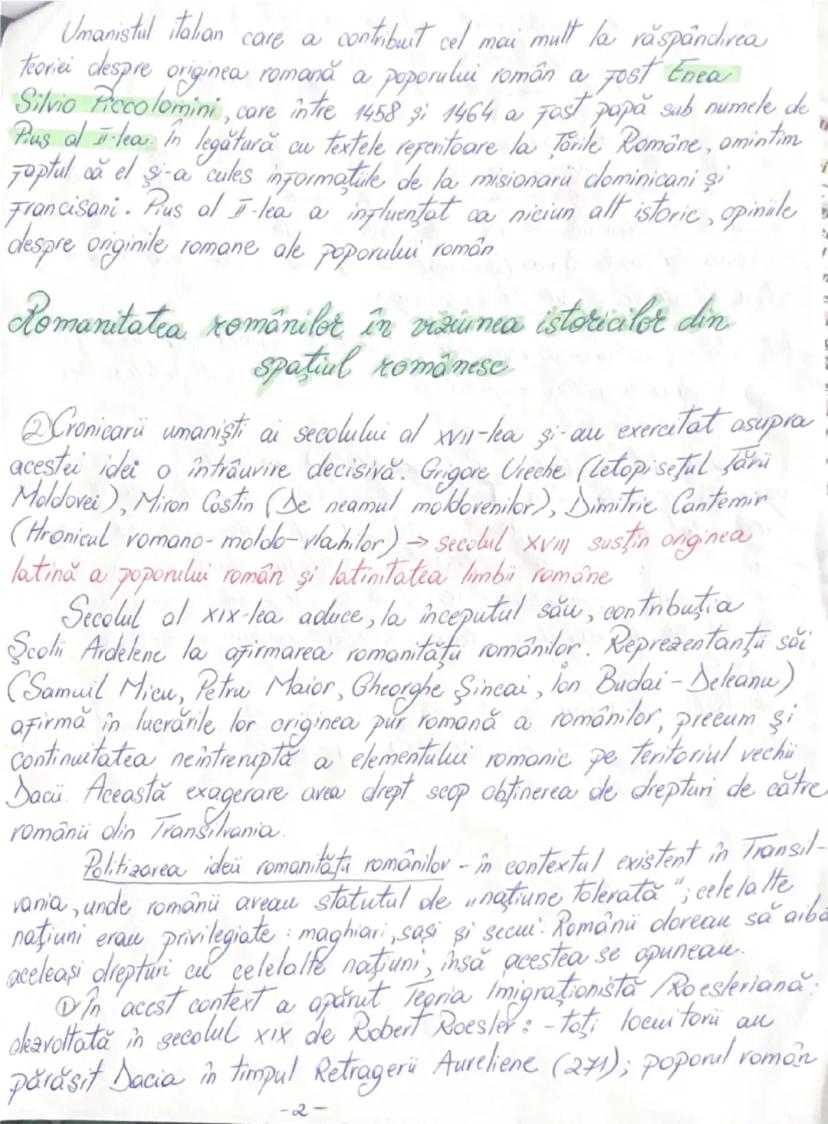 Umanistul italian care a contribuit cel mai mult la răspândirea
teoriei despre originea romană a poporului român a fost Enea
Silvio Piccolomini, care între 1458 și 1464 a fost papă sub numele de
Pius al II-lea. În legătură cu textele referitoare la Țările Române, amintim
faptul că el și-a cules informațiile de la misionarii dominicani și
Francisani. Pius al II-lea a influențat ca niciun alt istoric, opiniile
despre originile romane ale poporului român
Romanitatea românilor în viziunea istoricilor din
spațiul românesc
② Cronicarii umaniști ai secolului al XVII-lea și-au exercitat asupra
acestei idei o întrâuvire decisivă: Grigore Ureche (Letopisețul Țării
Moldovei), Miron Costin (De neamul moldovenilor), Dimitrie Cantemir
(Hronicul romano-moldo-vlahilor) → secolul XVIII susțin originea
latină a poporului român și latinitatea limbii române
Secolul al XIX-lea aduce, la începutul său, contribuția
Școlii Ardelene la afirmarea romanității românilor. Reprezentanții săi
(Samuil Micu, Petru Maior, Gheorghe Șincai, Ion Budai-Deleanu)
afirmă în lucrările lor originea pur romană a românilor, precum și
continuitatea neîntreruptă a elementului romanic pe teritoriul vechii
Dacii. Această exagerare avea drept scop obținerea de drepturi de către
românii din Transilvania.
Politizarea ideii romanității românilor - în contextul existent în Transil-
vania, unde românii aveau statutul de „națiune tolerată"; celelalte
națiuni erau privilegiate: maghiari, sași și secui. Românii doreau să aibă
aceleași drepturi cu celelalte națiuni, însă acestea se opuneau.
① În acest context a apărut Teoria Imigraționistă /Roesleriană:
dezvoltată în secolul XIX de Robert Roesler: - toți locuitorii au
părăsit Dacia în timpul Retragerii Aureliene (271); poporul român
-2-